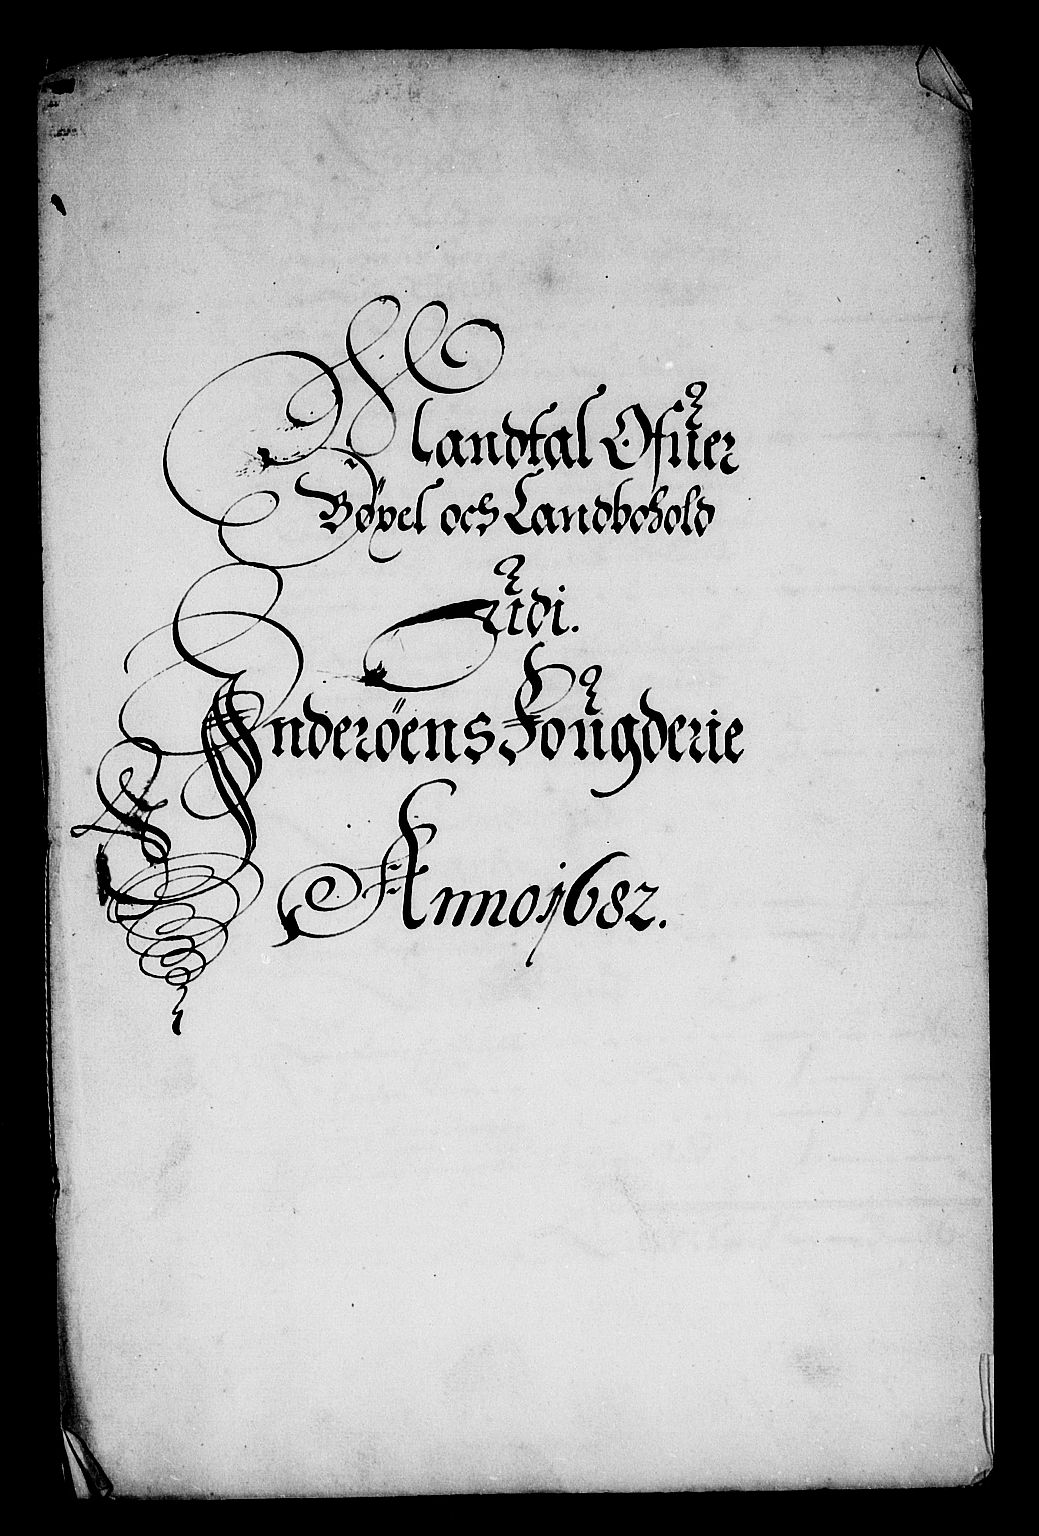 Mandtal Ofuer
Bøxel och Landbohold
Udi.
Inderöens Fougderie
Anno 1682.